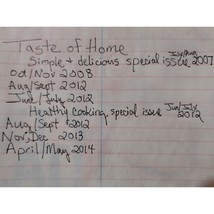 Taste of Home
Simple & delicious special issue July/Aug 2007
Oct/Nov 2008
Aug/Sept 2012
June/July 2012
Healthy Cooking special issue Jun/July 2012
Aug/Sept 2012
Nov/Dec 2013
April/May 2014